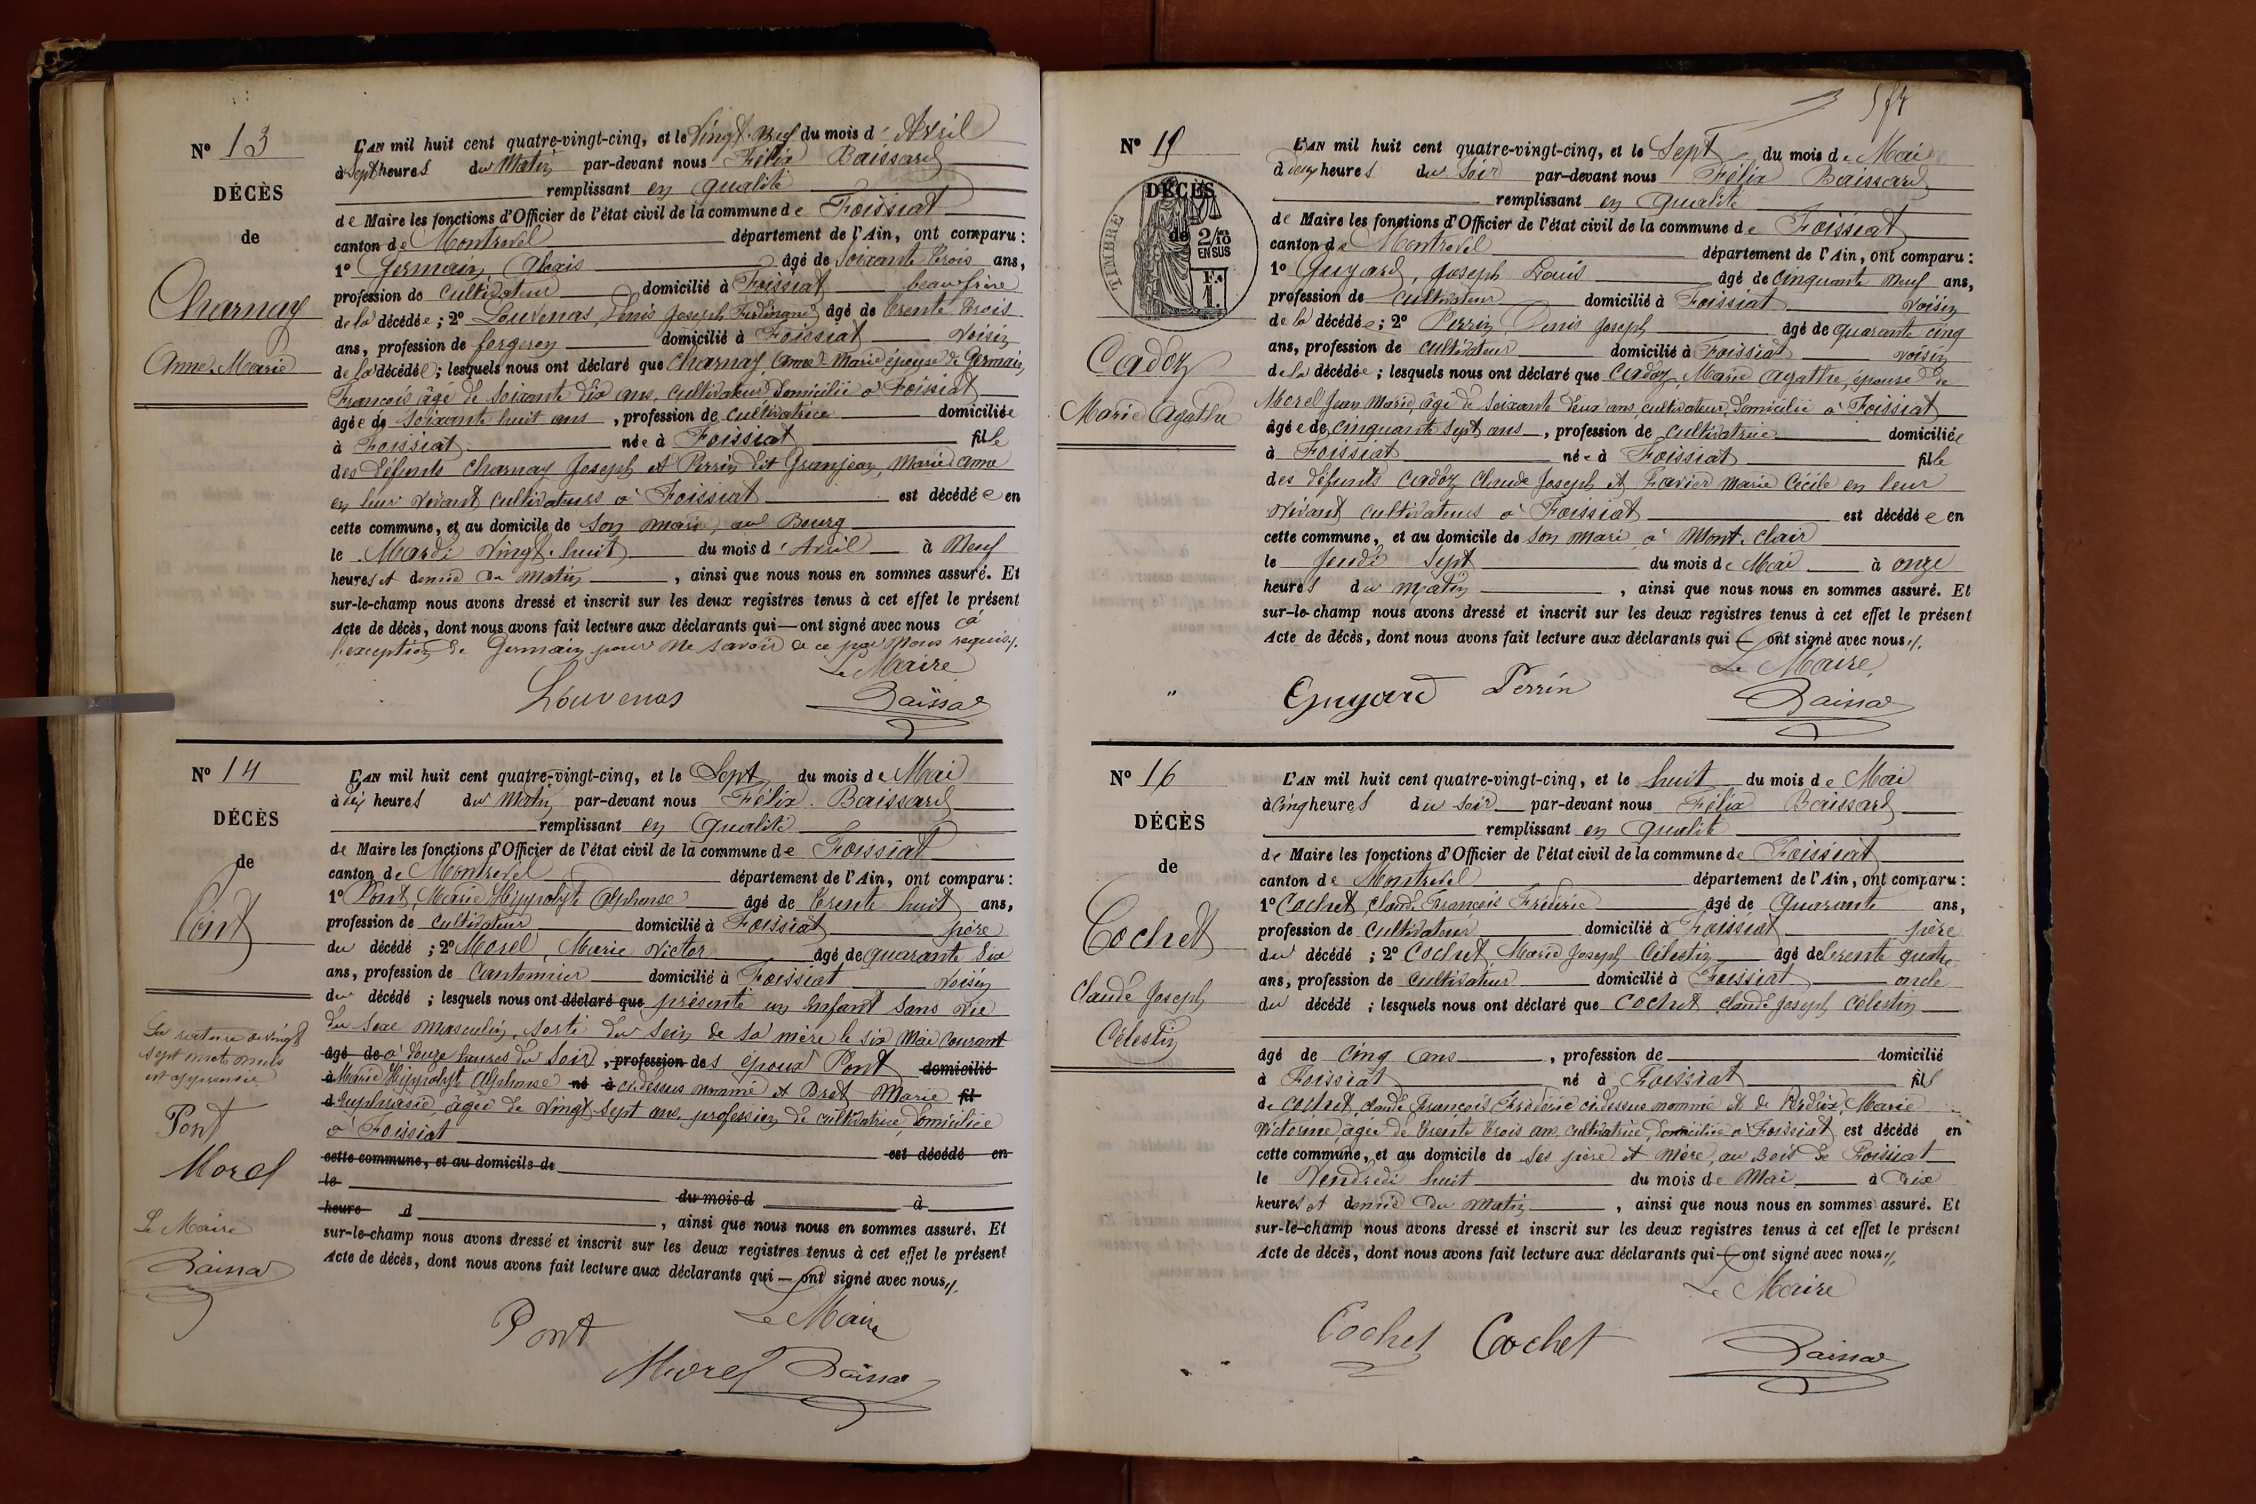 N° 13
DÉCÈS
de
Charnay
Anne Marie
L'AN mil huit cent quatre-vingt-cinq, et le Vingt-Neuf du mois d'Avril
à Sept heures du Matin par-devant nous Félix Baissard
remplissant en qualité
de Maire les fonctions d'Officier de l'état civil de la commune de Foissiat
canton de Montrevel département de l'Ain, ont comparu :
1° Germain, Alexis âgé de Soixante trois ans,
profession de cultivateur domicilié à Foissiat beau frère
de la décédée ; 2° Louvenas, Denis Joseph Ferdinand âgé de trente trois
ans, profession de forgeron domicilié à Foissiat Voisin
de la décédée ; lesquels nous ont déclaré que Charnay, Anne Marie épouse de Germain,
François âgé de Soixante dix ans, cultivateur domicilié à Foissiat
âgée de Soixante huit ans, profession de cultivatrice domiciliée
à Foissiat née à Foissiat fille
des défunts Charnay Joseph et Perrin dit Granjean, Marie Anne
en leur vivant cultivateurs à Foissiat est décédée en
cette commune, et au domicile de son mari, au Bourg
le Mardi vingt-huit du mois d'Avril à Neuf
heures et demie du Matin, ainsi que nous nous en sommes assuré. Et
sur-le-champ nous avons dressé et inscrit sur les deux registres tenus à cet effet le présent
Acte de décès, dont nous avons fait lecture aux déclarants qui — ont signé avec nous à
l'exception de Germain pour ne savoir de ce par Nous requis.
Le Maire
Louvenas Baissard
N° 14
DÉCÈS
de
Pont
La rature de vingt
sept mots nuls
est approuvée
Pont
Morel
Le Maire
Baissard
L'AN mil huit cent quatre-vingt-cinq, et le Sept du mois de Mai
à dix heures du Matin par-devant nous Félix Baissard
remplissant en qualité
de Maire les fonctions d'Officier de l'état civil de la commune de Foissiat
canton de Montrevel département de l'Ain, ont comparu :
1° Pont, Marie Hippolyte Alphonse âgé de trente huit ans,
profession de cultivateur domicilié à Foissiat père
du décédé ; 2° Morel, Marie Victor âgé de quarante six
ans, profession de Cantonnier domicilié à Foissiat Voisin
du décédé ; lesquels nous ont déclaré que présenté un Enfant Sans Vie
du Sexe Masculin, sorti du sein de sa mère le six Mai courant
âgé de à douze heures du Soir, profession de des époux Pont domicilié
à Marie Hippolyte Alphonse né à ci dessus nommé et Bret Marie fil
d Euphrasie âgée de vingt sept ans profession de cultivatrice domiciliée
à Foissiat
est décédé en
cette commune, et au domicile de
le du mois d à
heure d , ainsi que nous nous en sommes assuré. Et
sur-le-champ nous avons dressé et inscrit sur les deux registres tenus à cet effet le présent
Acte de décès, dont nous avons fait lecture aux déclarants qui — ont signé avec nous.
Le Maire
Pont
Morel Baissard
N° 15
DÉCÈS
de
TIMBRE
2/10 EN SUS
F. 1.
Cadoz
Marie Agathe
L'AN mil huit cent quatre-vingt-cinq, et le Sept du mois de Mai
à deux heures du Soir par-devant nous Félix Baissard
remplissant en qualité
de Maire les fonctions d'Officier de l'état civil de la commune de Foissiat
canton de Montrevel département de l'Ain, ont comparu :
1° Guyard, Joseph Louis âgé de cinquante neuf ans,
profession de cultivateur domicilié à Foissiat Voisin
de la décédée ; 2° Perrin, Denis Joseph âgé de quarante cinq
ans, profession de cultivateur domicilié à Foissiat voisin
de la décédée ; lesquels nous ont déclaré que Cadoz, Marie Agathe, épouse de
Morel Jean Marie, âgé de soixante deux ans, cultivateur, domicilié à Foissiat
âgée de cinquante sept ans, profession de cultivatrice domiciliée
à Foissiat née à Foissiat fille
des défunts Cadoz Claude Joseph et Favier Marie Cécile en leur
vivant cultivateurs à Foissiat est décédée en
cette commune, et au domicile de son mari à Mont-Clair
le Jeudi Sept du mois de Mai à onze
heures du Matin, ainsi que nous nous en sommes assuré. Et
sur-le-champ nous avons dressé et inscrit sur les deux registres tenus à cet effet le présent
Acte de décès, dont nous avons fait lecture aux déclarants qui — ont signé avec nous.
Le Maire
Guyard Perrin Baissard
N° 16
DÉCÈS
de
Cochet
Claude Joseph
Célestin
L'AN mil huit cent quatre-vingt-cinq, et le huit du mois de Mai
à Cinq heures du Soir par-devant nous Félix Baissard
remplissant en qualité
de Maire les fonctions d'Officier de l'état civil de la commune de Foissiat
canton de Montrevel département de l'Ain, ont comparu :
1° Cochet, Claude François Frédéric âgé de Quarante ans,
profession de cultivateur domicilié à Foissiat père
du décédé ; 2° Cochet, Marie Joseph Célestin âgé de trente quatre
ans, profession de cultivateur domicilié à Foissiat oncle
du décédé ; lesquels nous ont déclaré que Cochet Claude Joseph Célestin
âgé de Cinq ans, profession de domicilié
à Foissiat né à Foissiat fils
de Cochet, Claude François Frédéric ci dessus nommé et de Perdrix, Marie
Victorine, âgée de trente trois ans, cultivatrice, domiciliée à Foissiat est décédé en
cette commune, et au domicile de ses père et mère, au Bois de Foissiat
le Vendredi huit du mois de Mai à dix
heures et demie du Matin, ainsi que nous nous en sommes assuré. Et
sur-le-champ nous avons dressé et inscrit sur les deux registres tenus à cet effet le présent
Acte de décès, dont nous avons fait lecture aux déclarants qui — ont signé avec nous.
Le Maire
Cochet Cochet Baissard